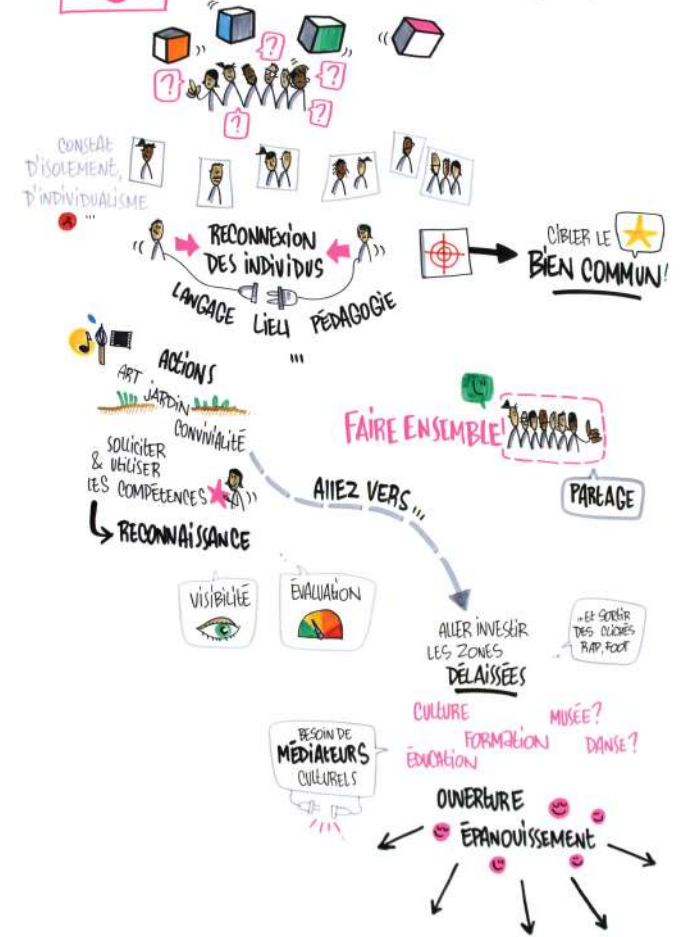 ?
?
?
?
?
CONSTAT
D'ISOLEMENT,
D'INDIVIDUALISME
...
RECONNEXION
DES INDIVIDUS
LANGAGE LIEU PÉDAGOGIE
...
CIBLER LE
BIEN COMMUN!
ACTIONS
ART
JARDIN
CONVIVIALITÉ
SOLLICITER
& UTILISER
LES COMPÉTENCES
RECONNAISSANCE
FAIRE ENSEMBLE!
PARTAGE
ALLEZ VERS...
VISIBILITÉ
ÉVALUATION
ALLER INVESTIR
LES ZONES
DÉLAISSÉES
...ET SORTIR
DES CLICHÉS
RAP, FOOT
CULTURE
MUSÉE?
FORMATION
DANSE?
ÉDUCATION
BESOIN DE
MÉDIATEURS
CULTURELS
OUVERTURE
ÉPANOUISSEMENT